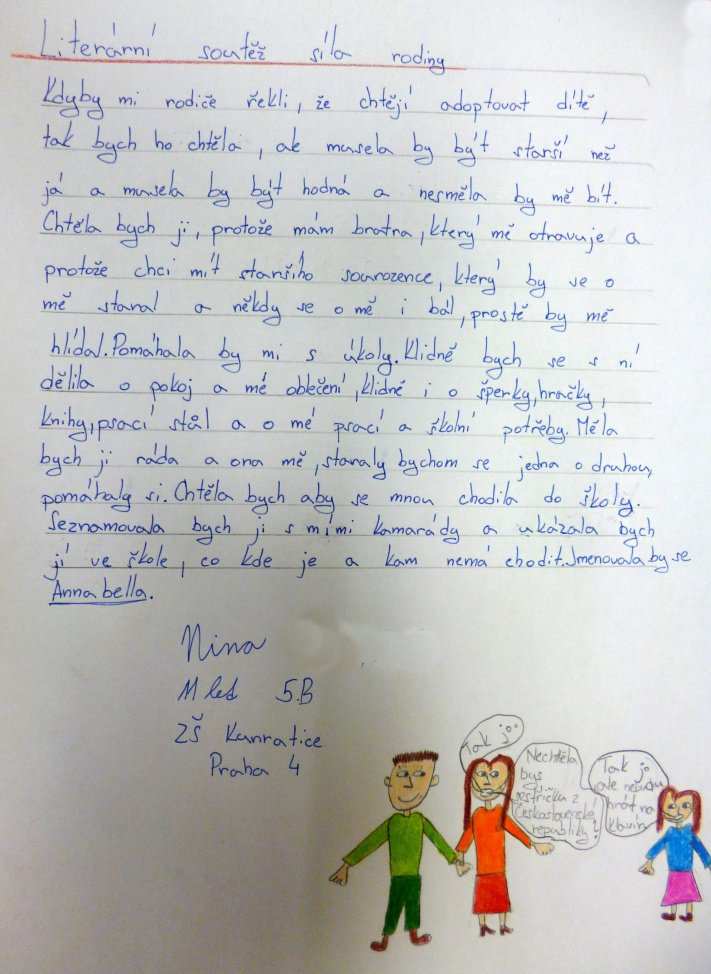 Literární soutěž síla rodiny
Kdyby mi rodiče řekli, že chtějí adoptovat dítě,
tak bych ho chtěla, ale musela by být starší než
já a musela by být hodná a nesměla by mě bít.
Chtěla bych ji, protože mám bratra, který mě otravuje a
protože chci mít staršího sourozence, který by se o
mě staral a někdy se o mě i bál, prostě by mě
hlídal. Pomáhala by mi s úkoly. Klidně bych se s ní
dělila o pokoj a mé oblečení, klidně i o šperky, hračky,
knihy, psací stůl a o mé psací a školní potřeby. Měla
bych ji ráda a ona mě, staraly bychom se jedna o druhou,
pomáhaly si. Chtěla bych aby se mnou chodila do školy.
Seznamovala bych ji s mími kamarády a ukázala bych
jí ve škole, co kde je a kam nemá chodit. Jmenovala by se
Annabella.
Nina
11 let 5.B
ZŠ Kunratice
Praha 4
Tak jo
Nechtěla
bys
sestřička z
Československé
republiky?
Tak jo
ale nebudu
hrát na
klavír